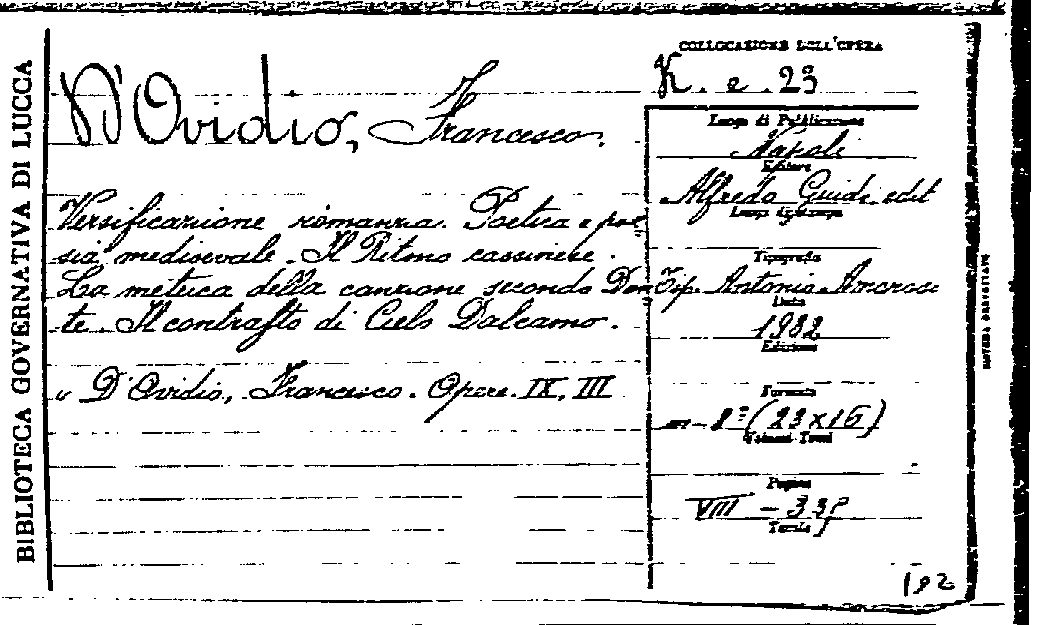 BIBLIOTECA GOVERNATIVA DI LUCCA
COLLOCAZIONE DELL'OPERA
K. e. 23
D'Ovidio, Francesco.
Luogo di Pubblicazione
Napoli
Editore
Alfredo Guida edit
Luogo di stampa
Versificazione romanza. Poetica e poe
sia medioevale. Il Ritmo cassinese.
La metrica della canzone secondo Dan
te. Il contrasto di Cielo Dalcamo.
Tipografia
Tip. Antonio Amoroso
Data
1932
Edizione
« D'Ovidio, Francesco. Opere. IX, III
Formato
8º (23x16)
Volumi Tomi
Pagine
VIII - 335
Tavole
192